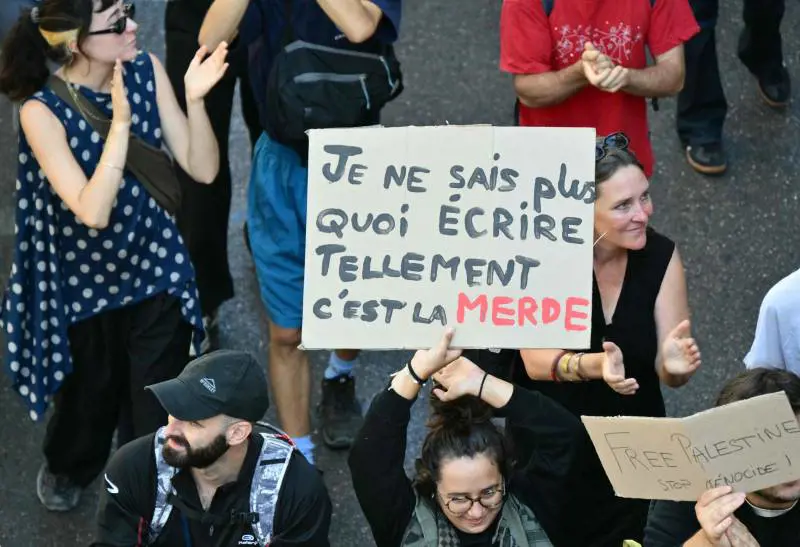 JE NE SAIS PLUS
QUOI ÉCRIRE
TELLEMENT
C'EST LA MERDE
FREE PALESTINE
STOP GÉNOCIDE !